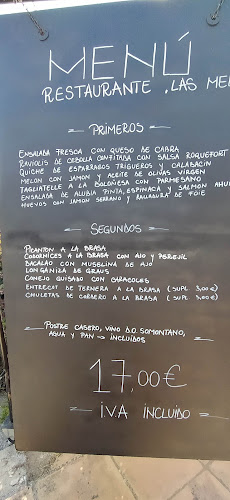 MENÚ
RESTAURANTE "LAS ME
PRIMEROS
ENSALADA FRESCA CON QUESO DE CABRA
RAVIOLIS DE CEBOLLA CONFITADA CON SALSA ROQUEFORT
QUICHE DE ESPARRAGOS TRIGUEROS Y CALABACIN
MELON CON JAMON Y ACEITE DE OLIVAS VIRGEN
TAGLIATELLE A LA BOLOÑESA CON PARMESANO
ENSALADA DE ALUBIA PINTA, ESPINACA Y SALMON AHU
HUEVOS CON JAMON SERRANO Y RALLADURA DE FOIE
SEGUNDOS
PICANTON A LA BRASA
CODORNICES A LA BRASA CON AJO Y PEREJIL
BACALAO CON MUSELINA DE AJO
LONGANIZA DE GRAUS
CONEJO GUISADO CON CARACOLES
ENTRECOT DE TERNERA A LA BRASA (SUPL 5,00€)
CHULETAS DE CORDERO A LA BRASA (SUPL 3,00€)
POSTRE CASERO, VINO D.O. SOMONTANO,
AGUA Y PAN → INCLUIDOS
17,00€
I.V.A INCLUIDO